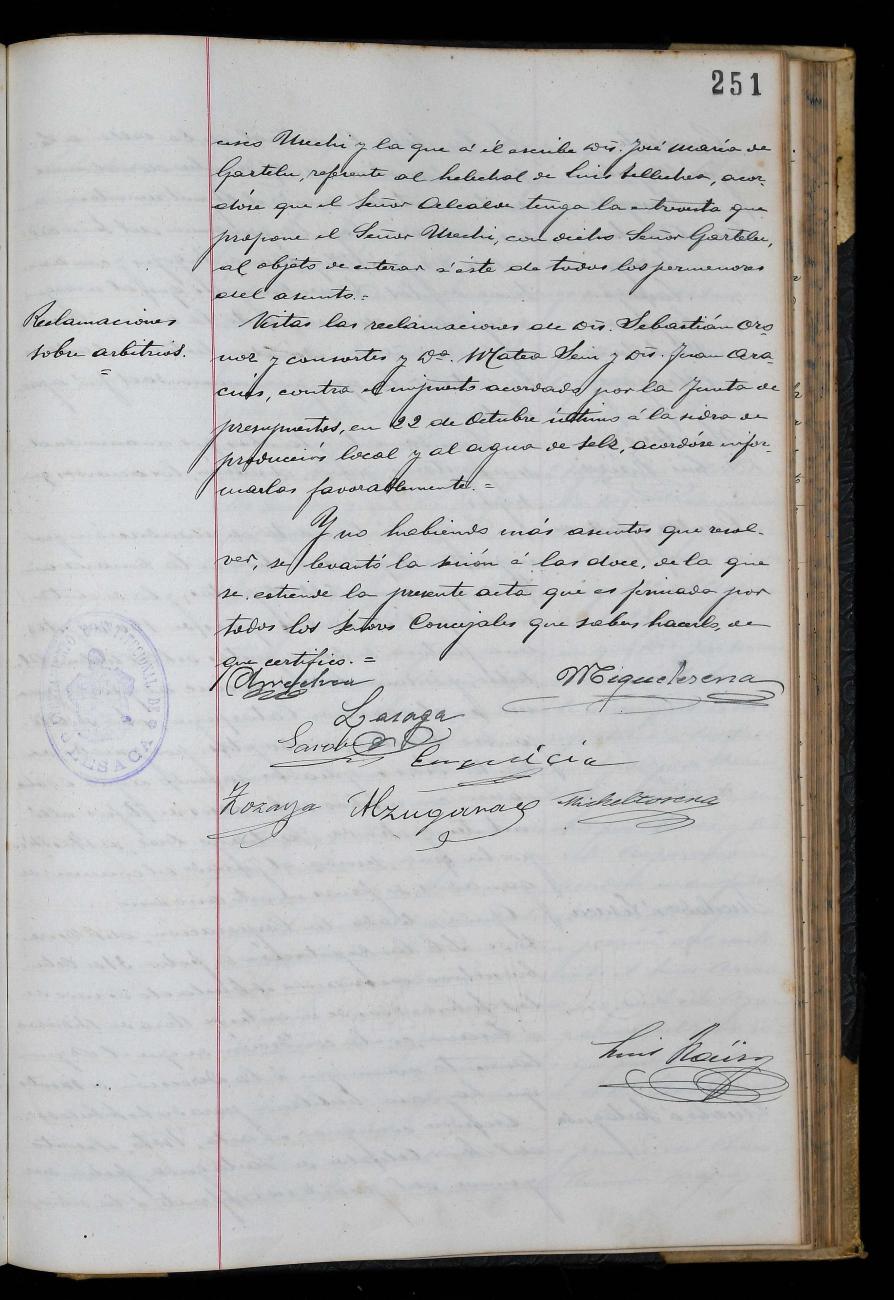 251
cisco Urechi y la que á él escribe Dn. José María de
Gartelu, referente al helechal de Luis Tellechea, acor-
dóse que el Señor Alcalde tenga la entrevista que
propone el Señor Urechi, con dicho Señor Gartelu,
al objeto de enterar á éste de todos los permenores
del asunto.=
Reclamaciones
sobre arbitrios.
=
Vistas las reclamaciones de Dn. Sebastián Oro
noz y consortes y Dª. Matea Sein y Dn. Juan Ara-
cuis, contra el impuesto acordado por la Junta de
presupuestos, en 22 de Octubre último á la sidra de
producción local y al agua de Selz, acordóse infor-
marlas favorablemente.=
Y no habiendo más asuntos que resol-
ver, se levantó la sesión á las doce, de la que
se estiende la presente acta que es firmada por
todos los Señores Concejales que saben hacerlo, de
que certifico.=
Miquelerena
Lasaga
Zozaya Alzugaray Micheltorena
Luis
LESACA